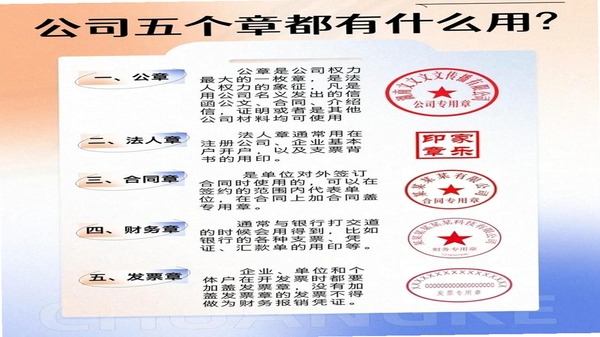 公司五个章都有什么用?
一、公章
公章是公司权力
最大的一枚章，是法
人权力的象征，凡是
用公司名义发出的信
函公文、合同、介绍
信，证明或者是其他
公司材料均可使用
公司专用章
二、法人章
法人章通常用在
注册公司、企业基本
户开户，以及支票背
书的用印。
印家
章乐
三、合同章
是单位对外签订
合同时使用的，可以在
签约的范围内代表单
位，在合同上加合同盖
专用章。
合同专用章
四、财务章
通常与银行打交道
的时候会用得到，比如
银行的各种支票、凭
证、汇款单的用印等。
财务专用章
五、发票章
企业、单位和个
体户在开发票时都要
加盖发票章，没有加
盖发票章的发票不得
做为财务报销凭证。
发票专用章
CHUANGKE